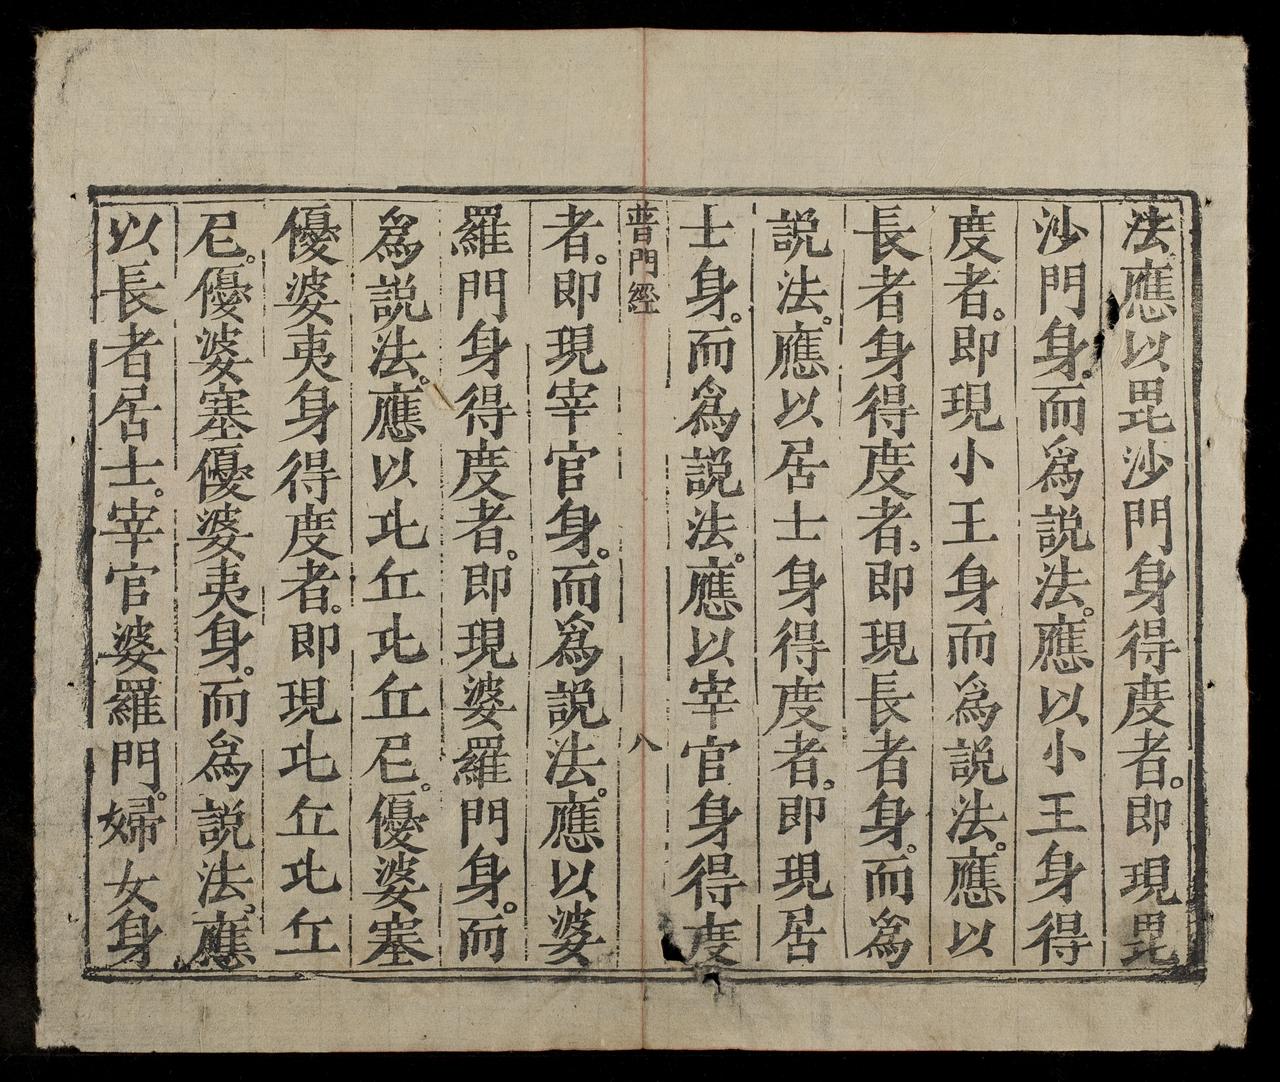 法應以毘沙門身得度者。即現毘
沙門身。而爲説法。應以小王身得
度者。即現小王身而爲説法。應以
長者身得度者。即現長者身。而爲
説法。應以居士身得度者。即現居
士身。而爲説法。應以宰官身得度
普門經 八
者。即現宰官身。而爲説法。應以婆
羅門身得度者。即現婆羅門身。而
爲説法。應以比丘比丘尼。優婆塞
優婆夷身得度者。即現比丘比丘
尼。優婆塞優婆夷身。而爲説法。應
以長者居士。宰官婆羅門。婦女身